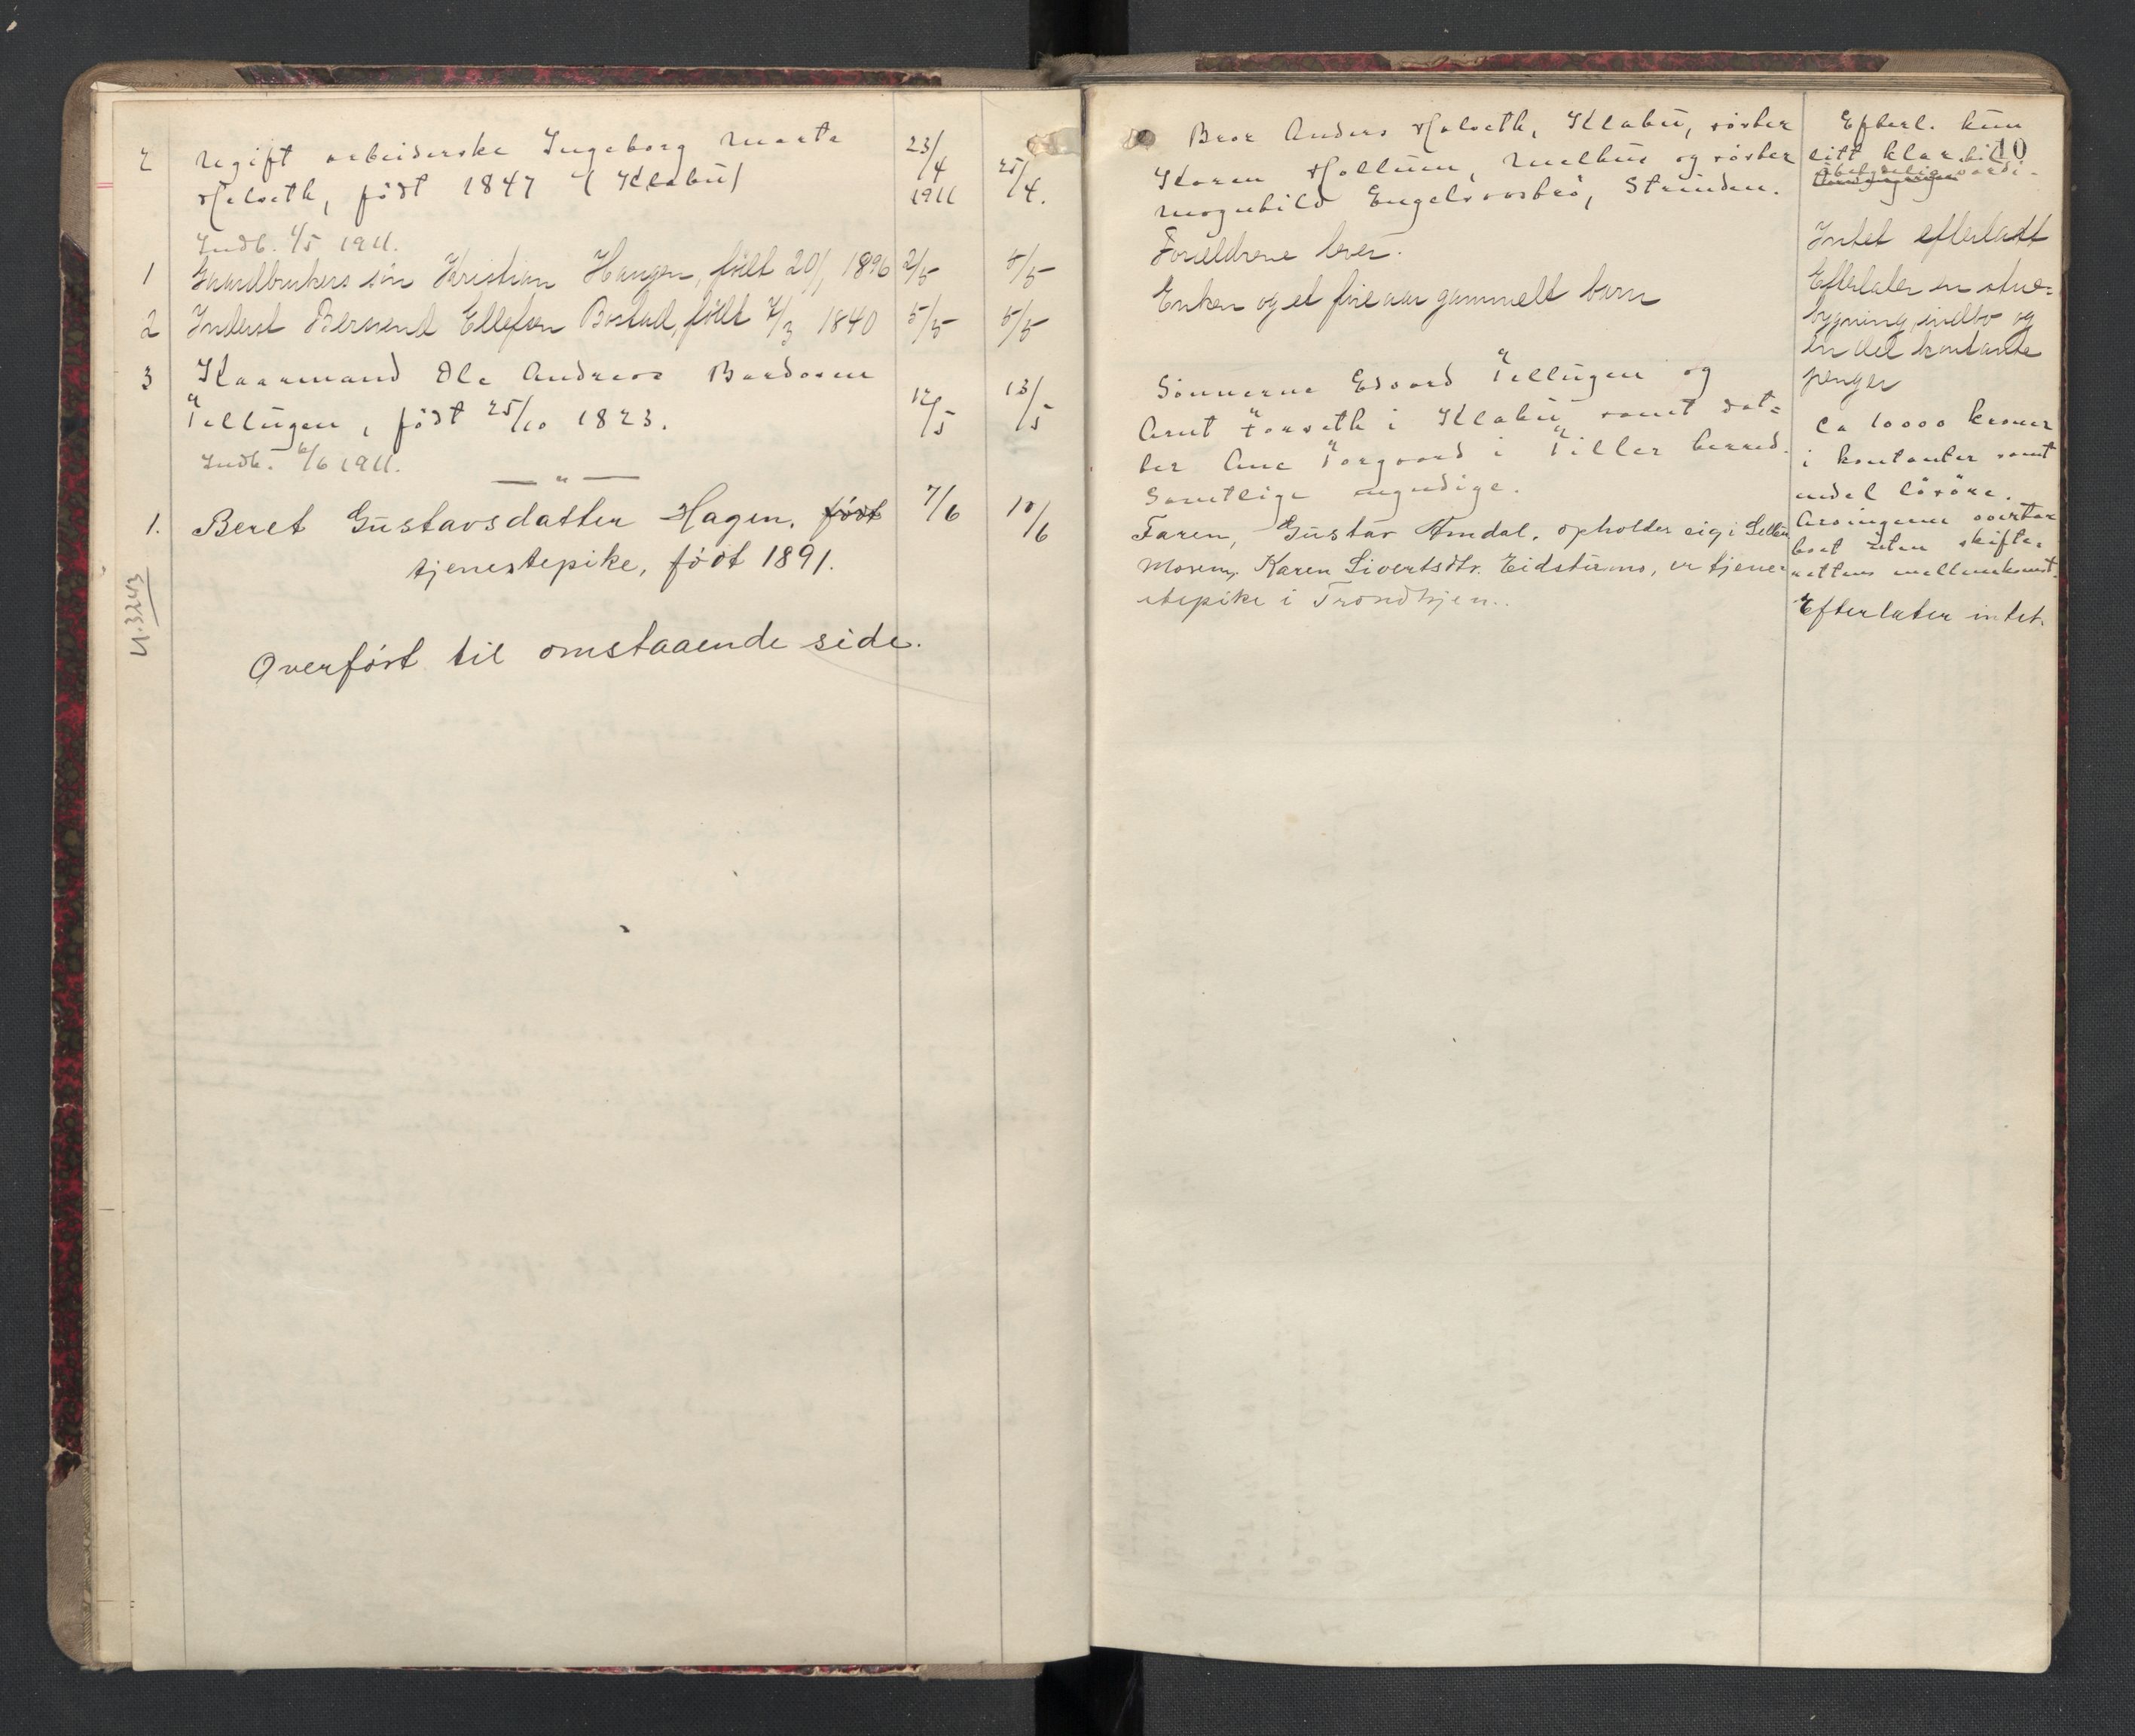 2 Ugift arbeiderske Ingeborg Marta 23/4 1911 25/4.
Halseth, født 1847 (Klæbu)
Indb. 1/5 1911.
1 Gaardbrukers søn Kristian Haugen, født 20/1 1896 2/5 5/5
2 Inderst Bersvend Ellefsen Bostad, født 7/3 1840 5/5 5/5
3 Kaarmand Ole Andreas Baardsen
Tellugen, født 25/10 1823. 12/5 13/5
Indb. 6/6 1911.
— " —
1. Beret Gustavsdatter Hagen, født 7/6 10/6
tjenestepike, født 1891.
U. 3243
Overført til omstaaende side.
10
Bror Anders Halseth, Klæbu, søster
Karen Hollum, Melhus og søster
Magnhild Engelsaasbrø, Strinden.
Forældrene lever.
Enken og et fire aar gammelt barn
Sønnerne Edvard Tellugen og
Arnt Forseth i Klæbu samt dat=
ter Ane Torgaard i Tiller herred.
Samtlige myndige.
Faren, Gustav Amdal, opholder sig i Selbu
Moren, Karen Sivertsdtr. Eidstumo, er tjene
stepike i Trondhjem.
Efterl. kun
litt klær til
ubetydelig værdi.
Intet efterlatt
Efterlater en stue=
bygning, indbo og
en del kontante
penger
Ca 10000 kroner
i kontanter samt
endel løsøre.
Arvingerne overtar
boet uten skifte=
rettens mellemkomst.
Efterlater intet.